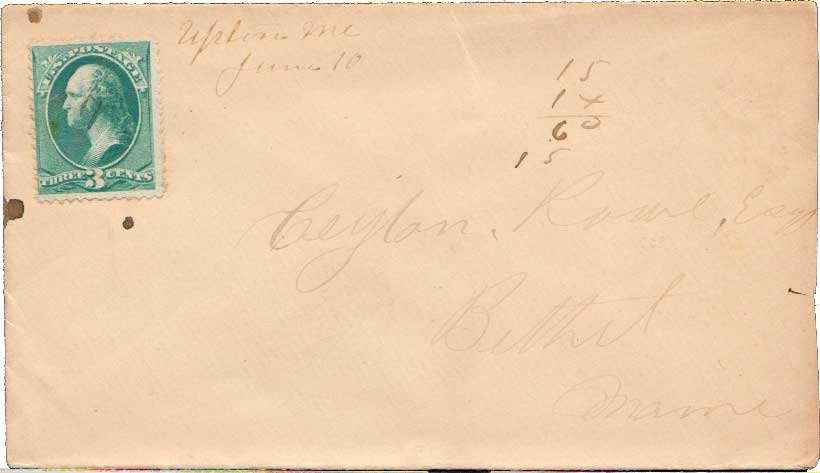 Upton Me
June 10
U.S. POSTAGE
THREE 3 CENTS
15
14
60
15
Ceylon Rowe, Esq
Bethel
Maine